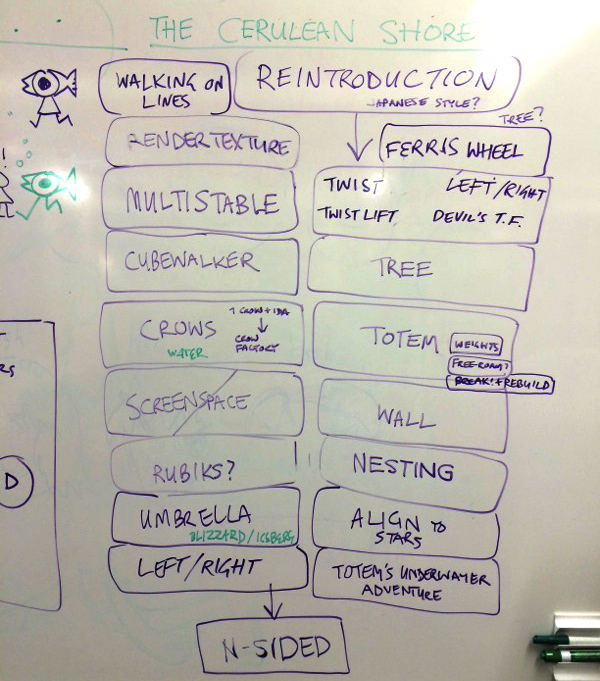 THE CERULEAN SHORE
WALKING ON
LINES
REINTRODUCTION
JAPANESE STYLE?
TREE?
RENDERTEXTURE
FERRIS WHEEL
MULTISTABLE
TWIST
LEFT/RIGHT
TWIST LIFT
DEVIL'S T.F.
CUBEWALKER
TREE
CROWS
WATER
1 CROW + IDA
CROW
FACTORY
TOTEM
WEIGHTS
FREE-ROAM?
BREAK! + REBUILD
SCREENSPACE
WALL
RUBIKS?
NESTING
UMBRELLA
BLIZZARD/ICEBERG
ALIGN TO
STARS
LEFT/RIGHT
TOTEM'S UNDERWATER
ADVENTURE
N-SIDED
D